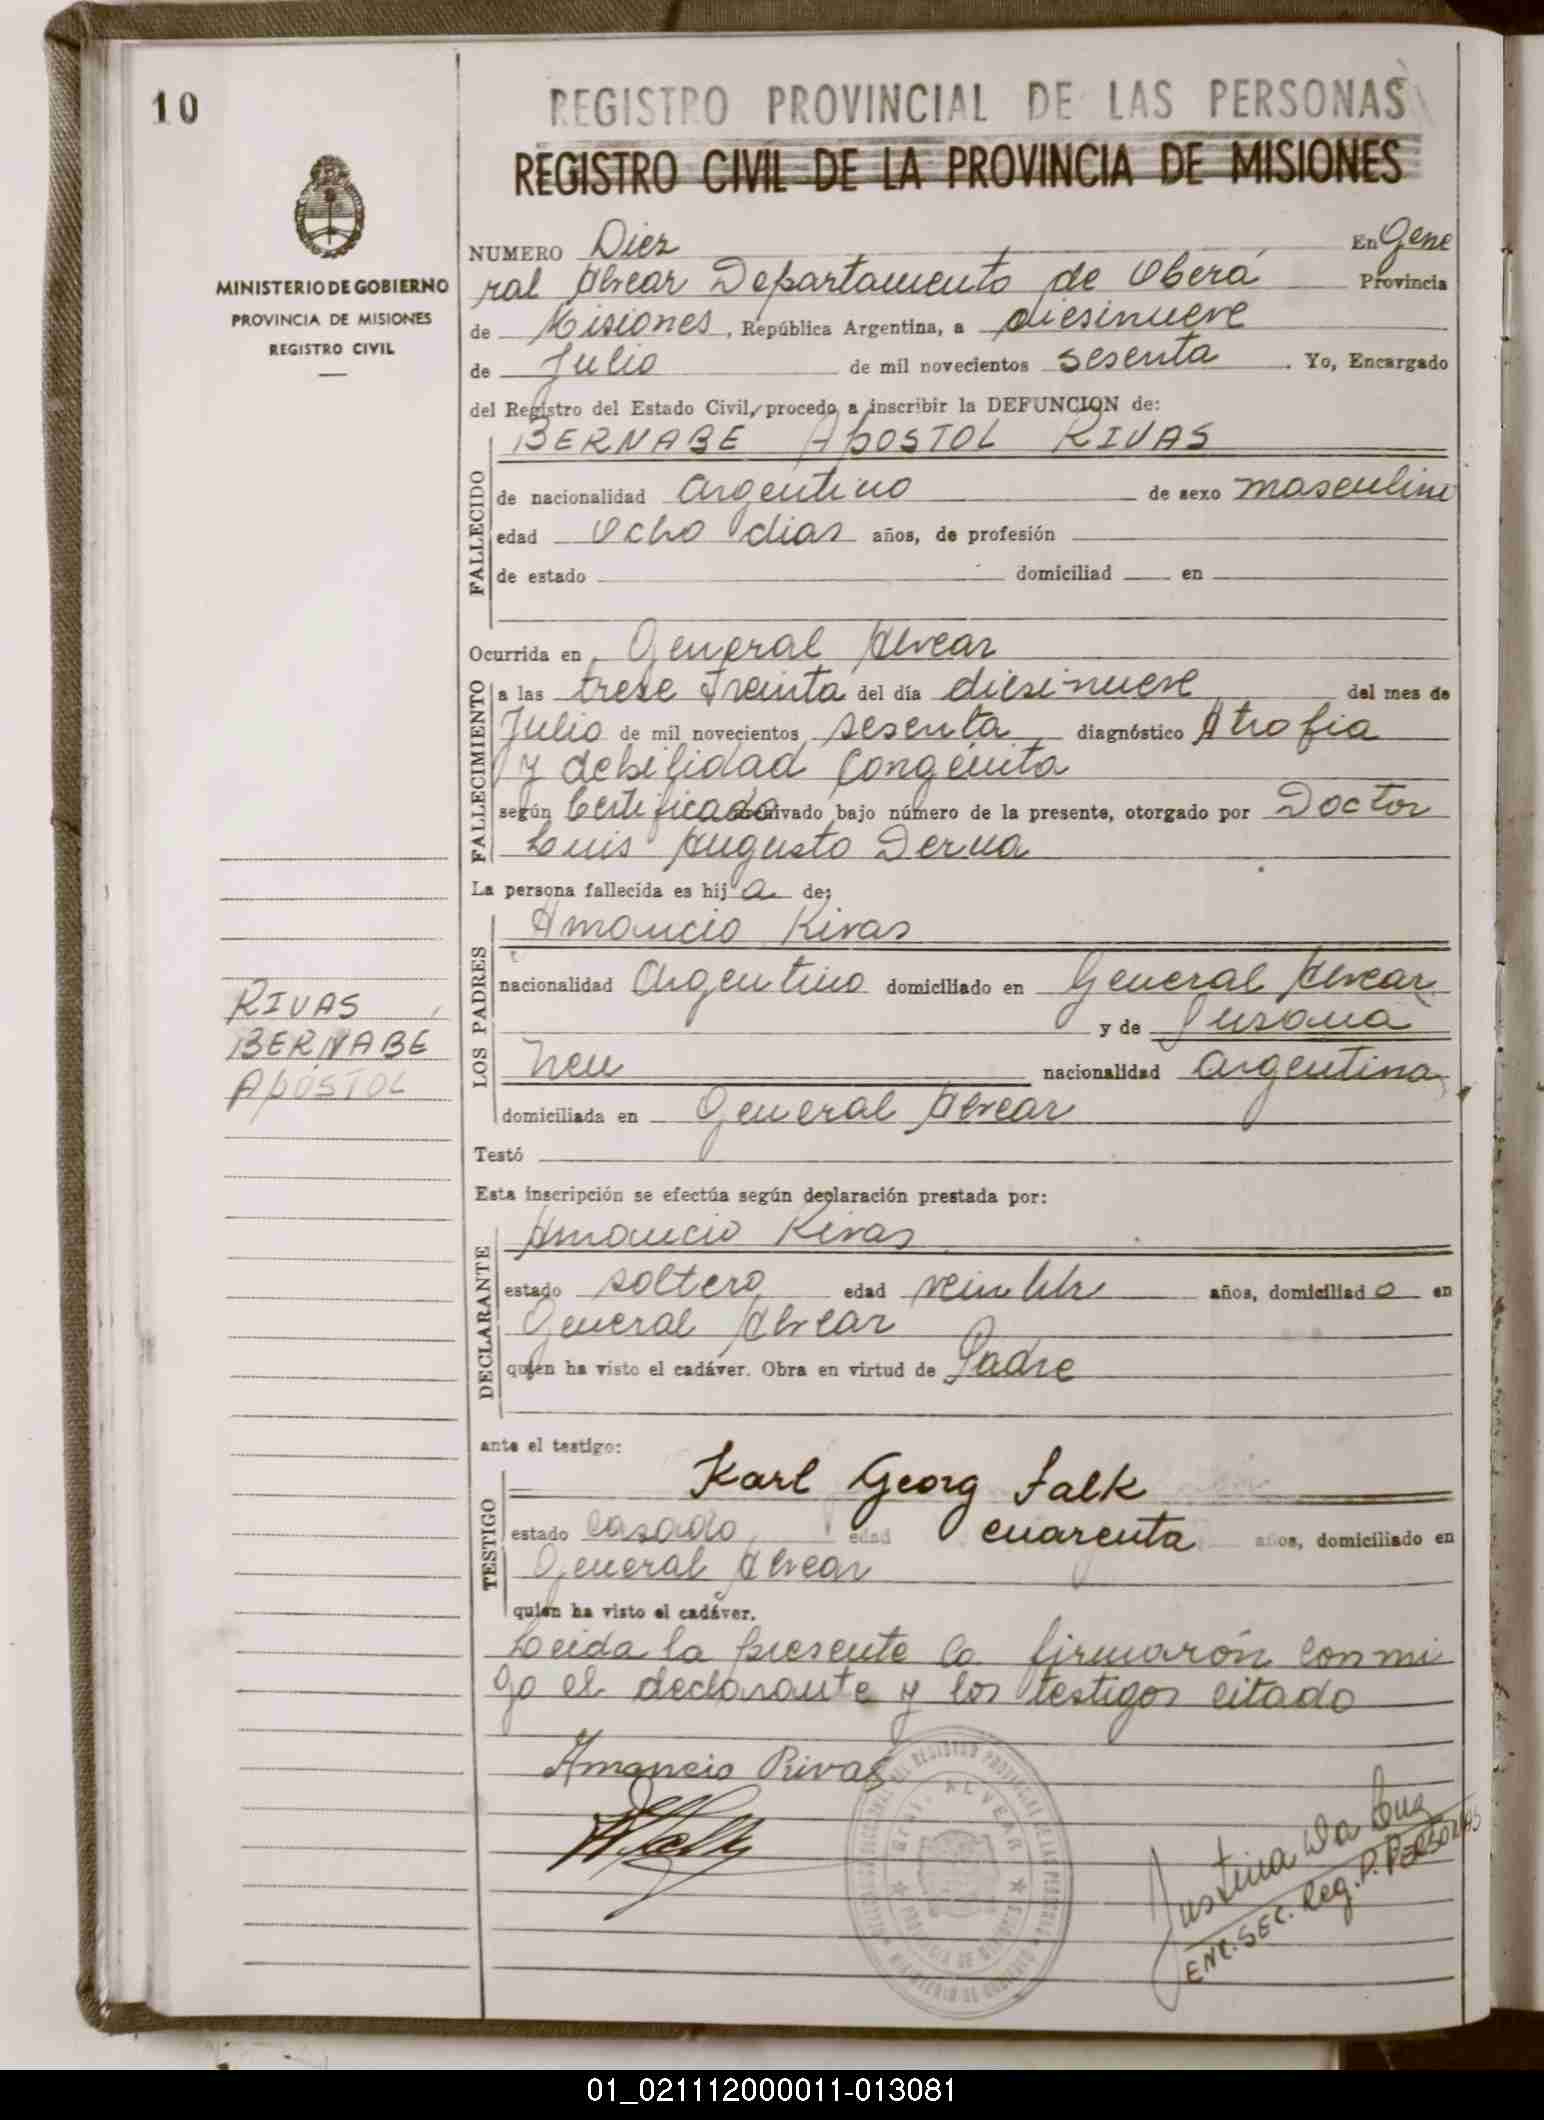 10
REGISTRO PROVINCIAL DE LAS PERSONAS
REGISTRO CIVIL DE LA PROVINCIA DE MISIONES
MINISTERIO DE GOBIERNO
PROVINCIA DE MISIONES
REGISTRO CIVIL
NUMERO Diez En Gene
ral Alvear Departamento de Oberá Provincia
de Misiones, República Argentina, a diesinueve
de Julio de mil novecientos sesenta. Yo, Encargado
del Registro del Estado Civil, procedo a inscribir la DEFUNCION de:
BERNABE APOSTOL RIVAS
FALLECIDO
de nacionalidad argentino de sexo masculino
edad Ocho dias años, de profesión
de estado domiciliad en
Ocurrida en General Alvear
FALLECIMIENTO
a las trese treinta del día diesinueve del mes de
Julio de mil novecientos sesenta diagnóstico Atrofia
y debilidad Congénita
según Certificado archivado bajo número de la presente, otorgado por Doctor
Luis Augusto Derna
La persona fallecida es hij a de:
LOS PADRES
Amancio Rivas
nacionalidad Argentino domiciliado en General Alvear
y de Susana
Neu nacionalidad argentina
domiciliada en General Alvear
RIVAS
BERNABE
APOSTOL
Testó
Esta inscripción se efectúa según declaración prestada por:
DECLARANTE
Amancio Rivas
estado soltero edad años, domiciliad o en
General Alvear
quien ha visto el cadáver. Obra en virtud de Padre
ante el testigo:
TESTIGO
Karl Georg Falk
estado Casado edad cuarenta años, domiciliado en
General Alvear
quien ha visto el cadáver.
Leida la presente la firmarón conmi
go el declarante y los testigos citado
Amancio Rivas
Gral. ALVEAR
PROVINCIA DE MISIONES
MINISTERIO DE GOBIERNO
Justina Da Cruz
ENC. SEC. Reg. P. PERSONAS
01_021112000011-013081